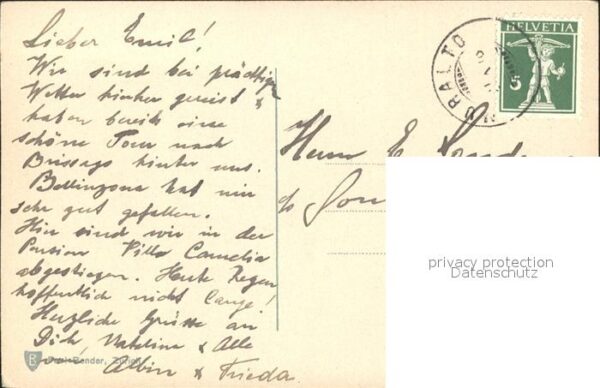 Lieber Emil!
Wir sind bei prächtigem
Wetter hierher gereist &
haben bereits eine
schöne Tour nach
Brissago hinter uns.
Bellinzona hat mir
sehr gut gefallen.
Hier sind wir in der
Pension Villa Camelia
abgestiegen. Heute Regen
hoffentlich nicht lange!
Herzliche Grüsse an
Dich, & Alle
Albin & Frieda
Zürich
MURALTO
HELVETIA
5
Herrn E.
privacy protection
Datenschutz